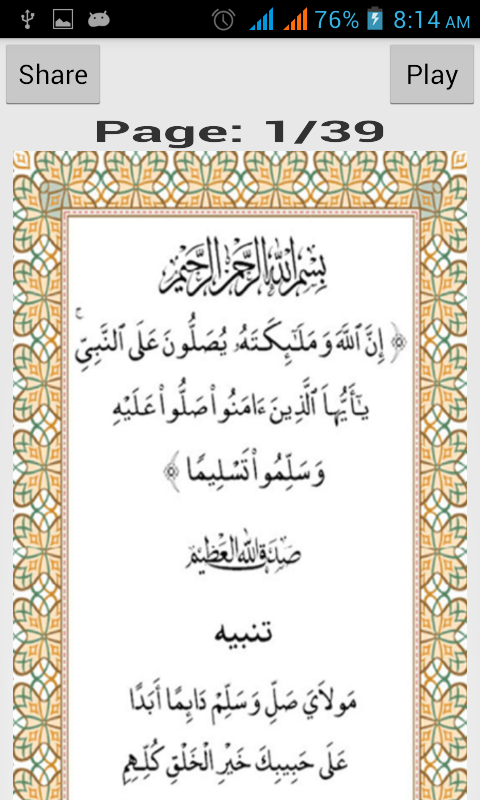 76% 8:14 AM
Share Play
Page: 1/39
بِسْمِ اللَّهِ الرَّحْمٰنِ الرَّحِيمِ
﴿ إِنَّ ٱللَّهَ وَمَلَـٰٓئِكَتَهُۥ يُصَلُّونَ عَلَى ٱلنَّبِيِّ ۚ
يَـٰٓأَيُّهَا ٱلَّذِينَ ءَامَنُوا۟ صَلُّوا۟ عَلَيْهِ
وَسَلِّمُوا۟ تَسْلِيمًا ﴾
صَدَقَ اللَّهُ الْعَظِيمُ
تنبيه
مَولَايَ صَلِّ وَسَلِّمْ دَايِمًا أَبَدًا
عَلَى حَبِيبِكَ خَيْرِ الْخَلْقِ كُلِّهِمِ